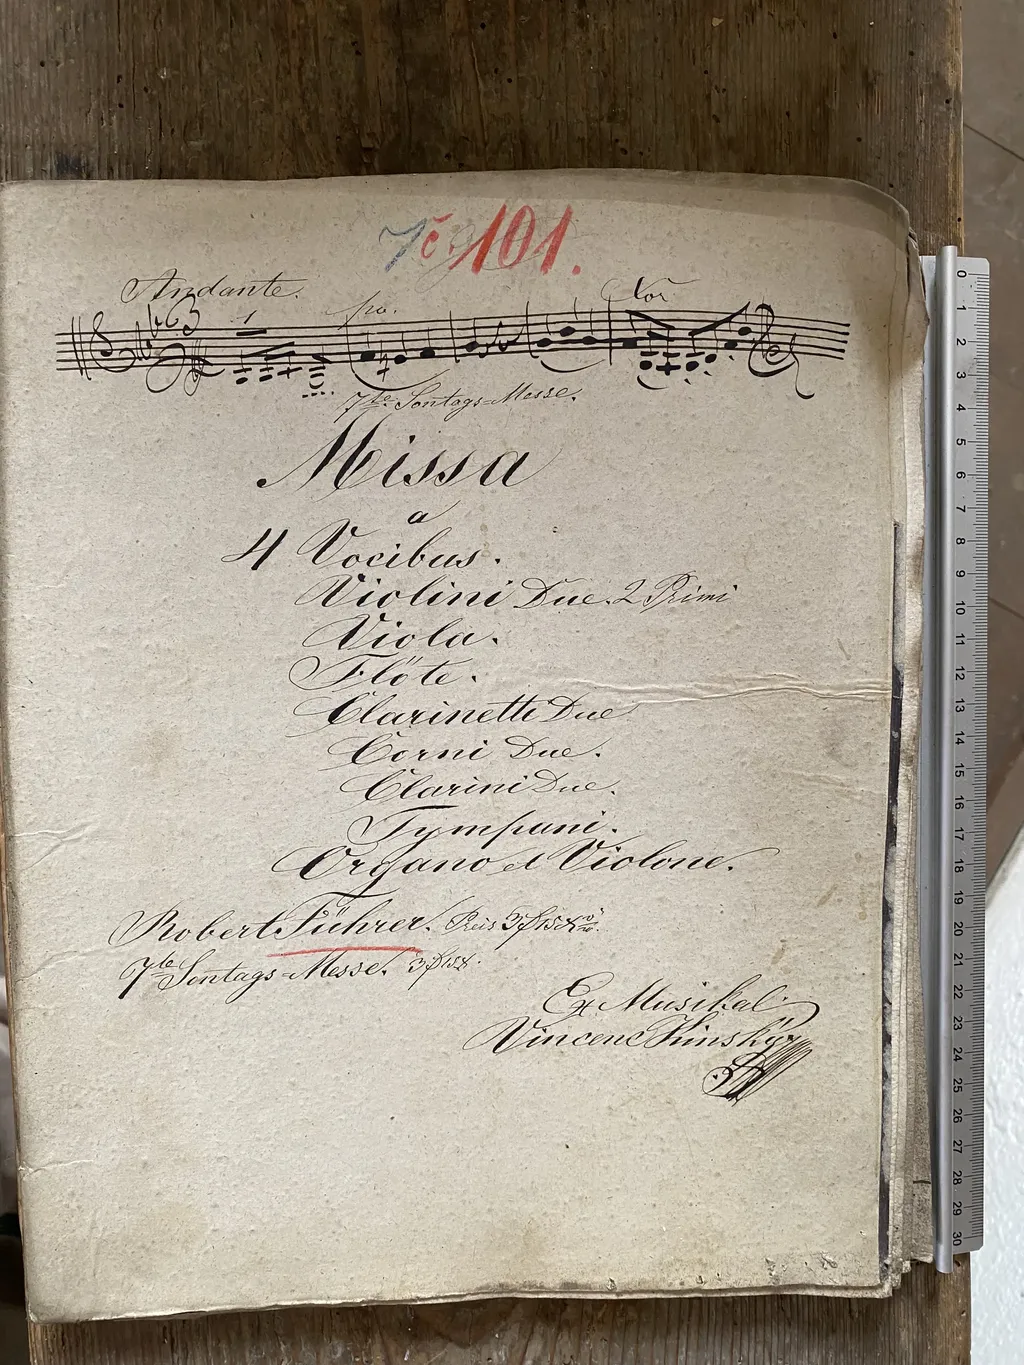 č. 101.
Andante.
1 po. Vor
7te Sontags-Messe.
Missa
a
4 Vocibus.
Violini Due. 2 Primi
Viola.
Flöte.
Clarinetti Due
Corni Due.
Clarini Due.
Tympani.
Organo et Violone.
Robert Führer. Preis 3f 15x
7te Sontags-Messe. 3f 15x.
Ex Musikal.
Vincenc
0
1
2
3
4
5
6
7
8
9
10
11
12
13
14
15
16
17
18
19
20
21
22
23
24
25
26
27
28
29
30